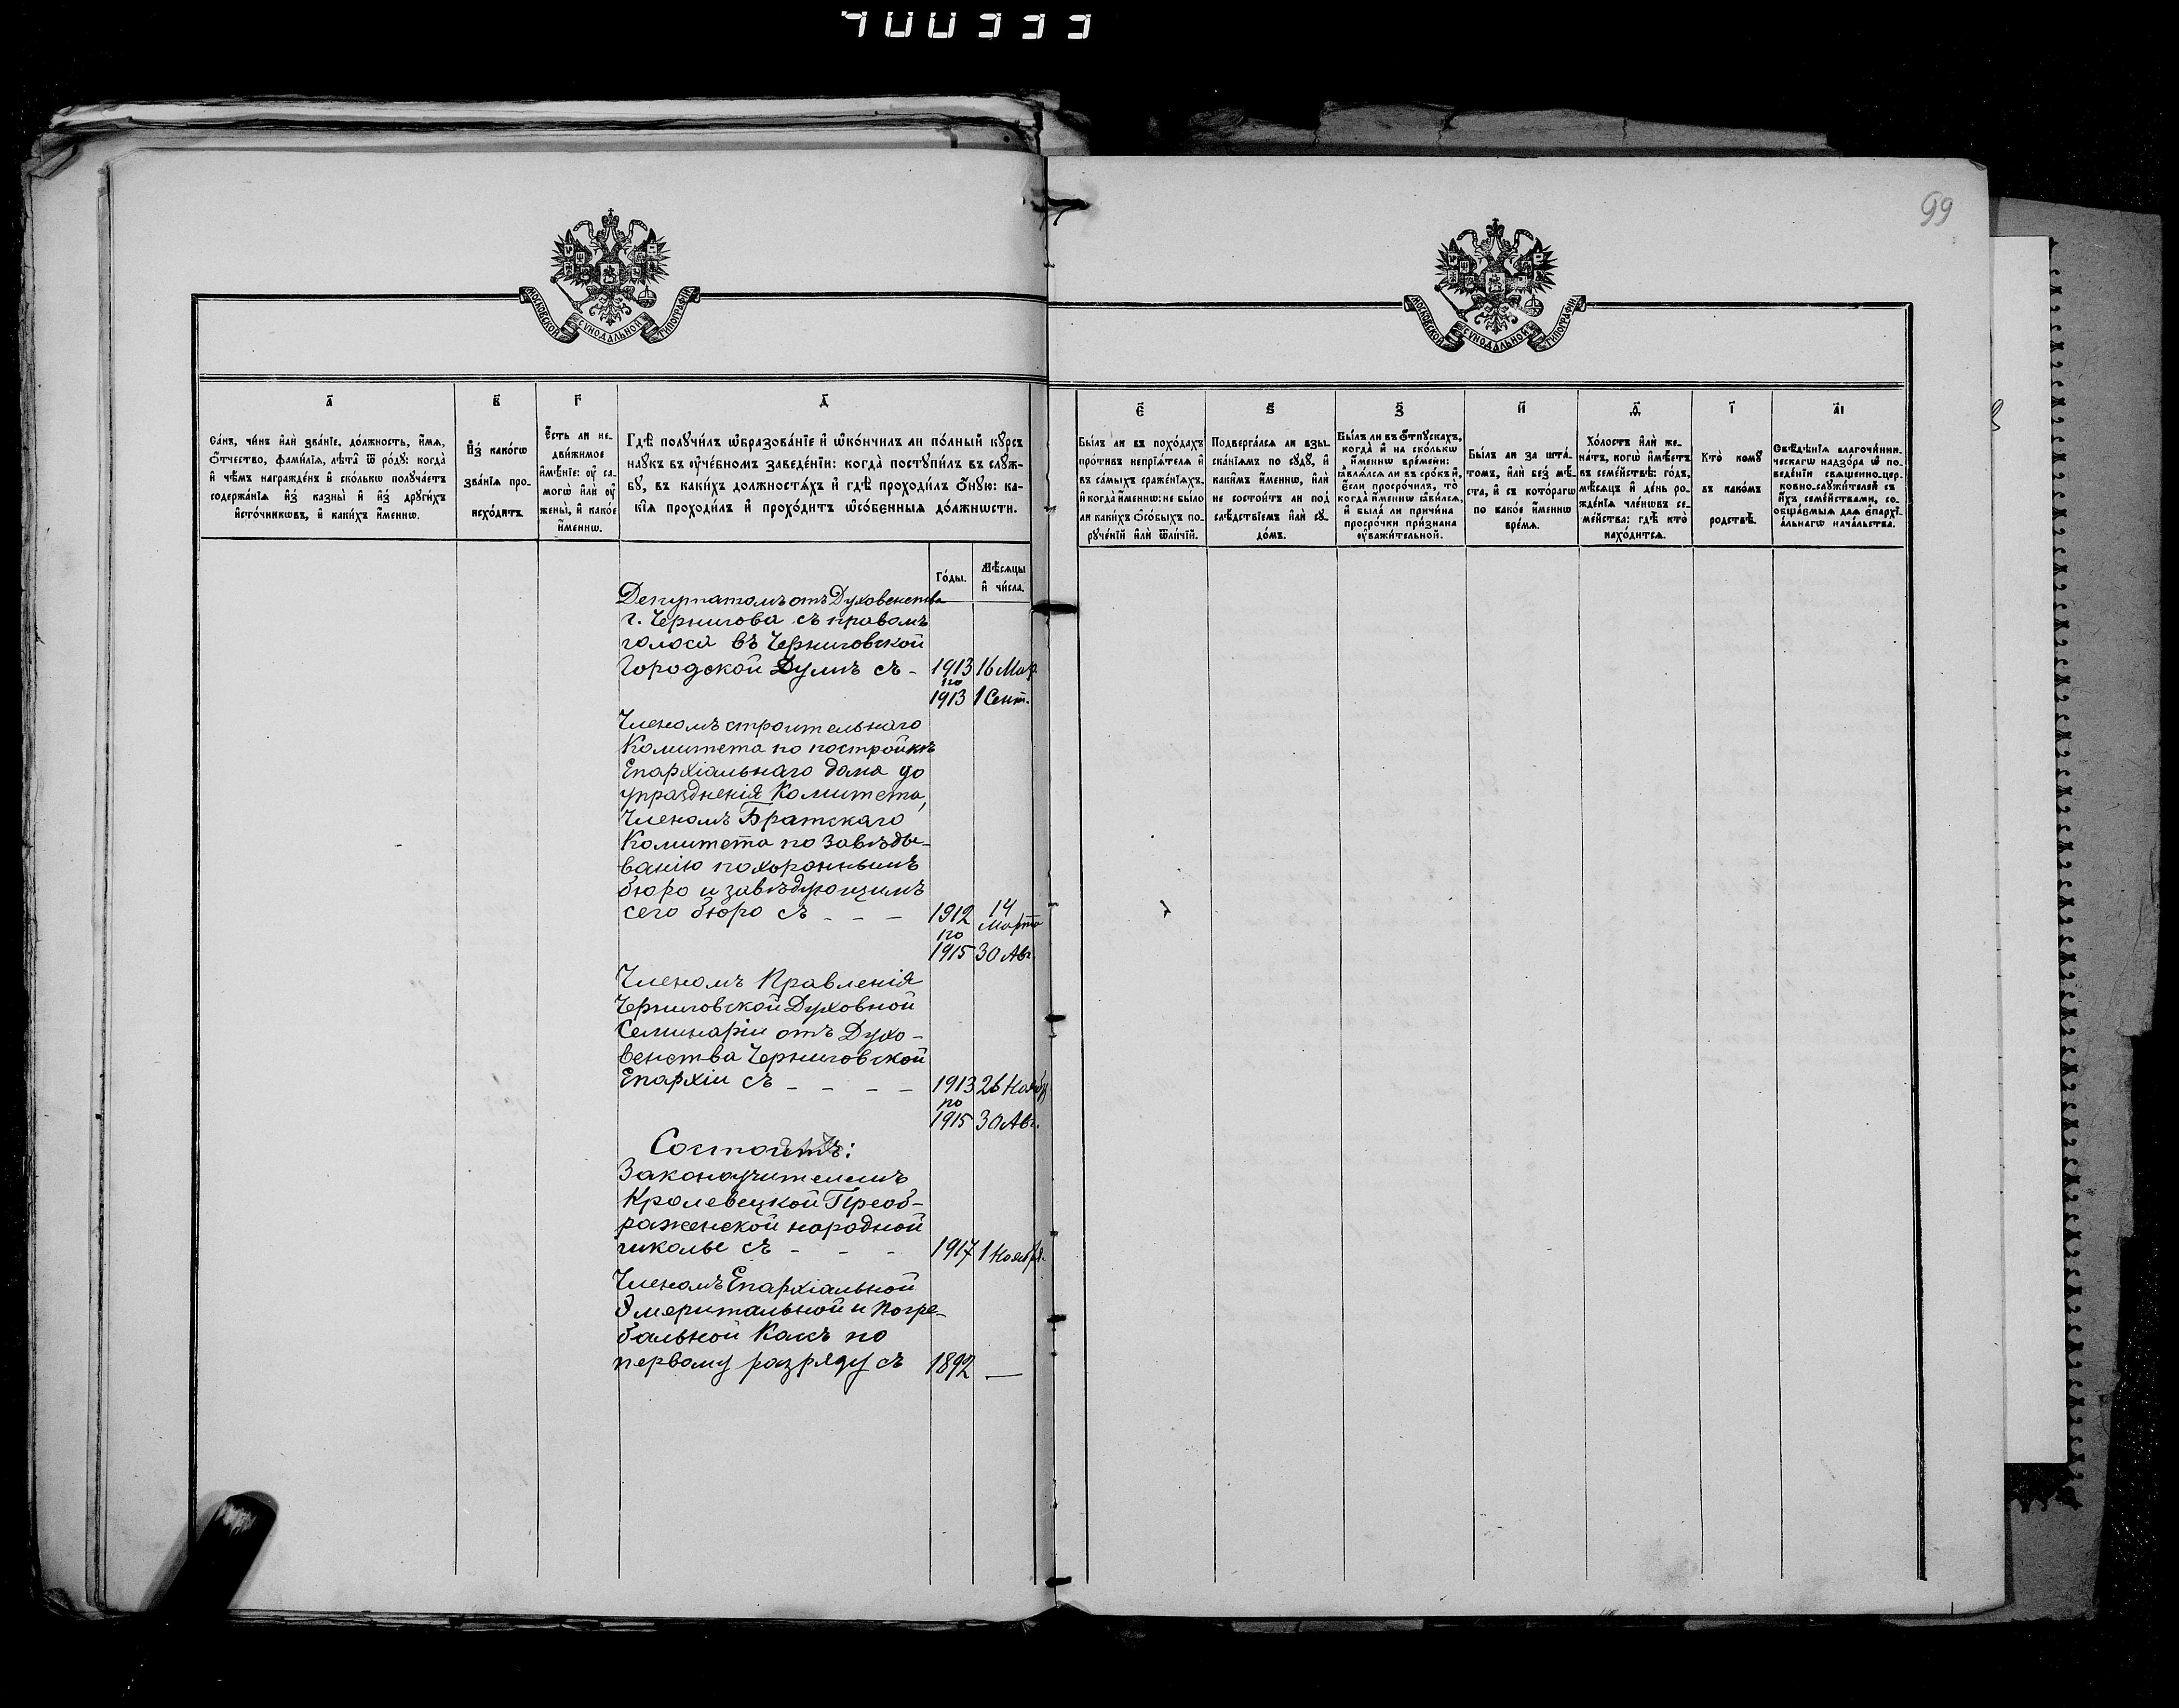 99
МОСКОВСКОЙ СѴНОДАЛЬНОЙ ТИПОГРАФІИ
МОСКОВСКОЙ СѴНОДАЛЬНОЙ ТИПОГРАФІИ
а҃
Са́нъ, чи́нъ и҆лѝ зва́нїе, до́лжность, и҆́мѧ,
ѻ҆́тчество, фами́лїѧ, лѣ́та ѿ ро́дꙋ: когда̀
и҆ чѣ́мъ награжде́нъ и҆ ско́лькѡ полꙋча́етъ
содержа́нїѧ и҆з̾ казны̀ и҆ и҆з̾ дрꙋги́хъ
и҆сто́чникѡвъ, и҆ каки́хъ и҆́меннѡ.
в҃
И҆з̾ како́гѡ
зва́нїѧ про-
исхо́дитъ
г҃
Є҆́сть ли не-
дви́жимое
и҆мѣ́нїе: ᲂу҆ са-
могѡ̀ и҆лѝ ᲂу҆
жены̀, и҆ како́е
и҆́меннѡ.
д҃
Гдѣ̀ полꙋчи́лъ ѡ҆бразова́нїе и҆ ѡ҆ко́нчилъ ли по́лный кꙋ́рсъ
наꙋ́къ въ ᲂу҆че́бномъ заведе́нїи: когда̀ постꙋпи́лъ въ слꙋ́ж-
бꙋ, въ каки́хъ должностѧ́хъ и҆ гдѣ̀ проходи́лъ ѻ҆́нꙋю: ка-
кі́ѧ проходи́лъ и҆ прохо́дитъ ѡ҆со́бенныѧ до́лжнѡсти.
Го́ды.
Мѣ́сѧцы
и҆ чи́сла.
є҃
Бы́лъ ли въ похо́дахъ
про́тивъ непрїѧ́телѧ и҆
въ са́мыхъ сраже́нїѧхъ,
и҆ когда̀ и҆́меннѡ: не бы́ло
ли каки́хъ ѻ҆со́быхъ по-
рꙋче́нїй и҆лѝ ѿли́чїй.
ѕ҃
Подверга́лсѧ ли взы-
ска́нїѧмъ по сꙋдꙋ̀, и҆
каки́мъ и҆́меннѡ, и҆лѝ
не состои́тъ ли под̾
слѣ́дствїемъ и҆лѝ сꙋ-
до́мъ.
з҃
Бы́лъ ли въ ѻ҆́тпꙋскахъ,
когда̀ и҆ на ско́лькѡ
и҆́меннѡ вре́мени:
ꙗ҆влѧ́лсѧ ли въ сро́къ и҆,
є҆́сли просро́чилъ, то̀
когда̀ и҆́меннѡ ꙗ҆ви́лсѧ,
и҆ была̀ ли причи́на
просро́чки при́знана
ᲂу҆важи́тельной.
и҃
Бы́лъ ли за шта́-
томъ, и҆лѝ без̾ мѣ́-
ста, и҆ съ кото́рагѡ
по како́е и҆́меннѡ
вре́мѧ.
ѳ҃
Хо́лостъ и҆лѝ же-
на́тъ, когѡ̀ и҆мѣ́етъ
въ семе́йствѣ: го́дъ,
мѣ́сѧцъ и҆ де́нь ро-
жде́нїѧ чле́нѡвъ се-
ме́йства: гдѣ̀ кто̀
нахо́дитсѧ.
і҃
Кто̀ комꙋ̀
въ како́мъ
родствѣ̀.
а҃і
Свѣ́дѣнїѧ благочи́нни-
ческагѡ надзо́ра ѡ҆ по-
веде́нїи свѧще́нно-цер-
ковно-слꙋжи́телей съ
и҆́хъ семе́йствами, со-
ѡбща́емыѧ длѧ̀ є҆пархї-
а́льнагѡ нача́льства.
Депутатомъ отъ Духовенства
г. Чернигова съ правомъ
голоса въ Черниговской
Городской Думѣ съ - 1913 16 Мар
по
1913 1 Сент.
Членомъ строительнаго
Комитета по постройкѣ
Епархіальнаго дома до
упраздненія Комитета,
Членомъ Братскаго
Комитета по завѣды-
ванію похороннымъ
бюро и завѣдующимъ
сего бюро съ - - - 1912 14 Марта
по
1915 30 Авг.
Членомъ Правленія
Черниговской Духовной
Семинаріи отъ Духо-
венства Черниговской
Епархіи съ - - - - 1913 26 Ноябр
по
1915 30 Авг.
Состоитъ:
Законоучителемъ
Кролевецкой Преоб-
раженской народной
школы съ - - - 1917 1 Ноября.
Членомъ Епархіальной
Эмеритальной и Погре-
бальной Кассъ по
первому разряду съ 1892 —